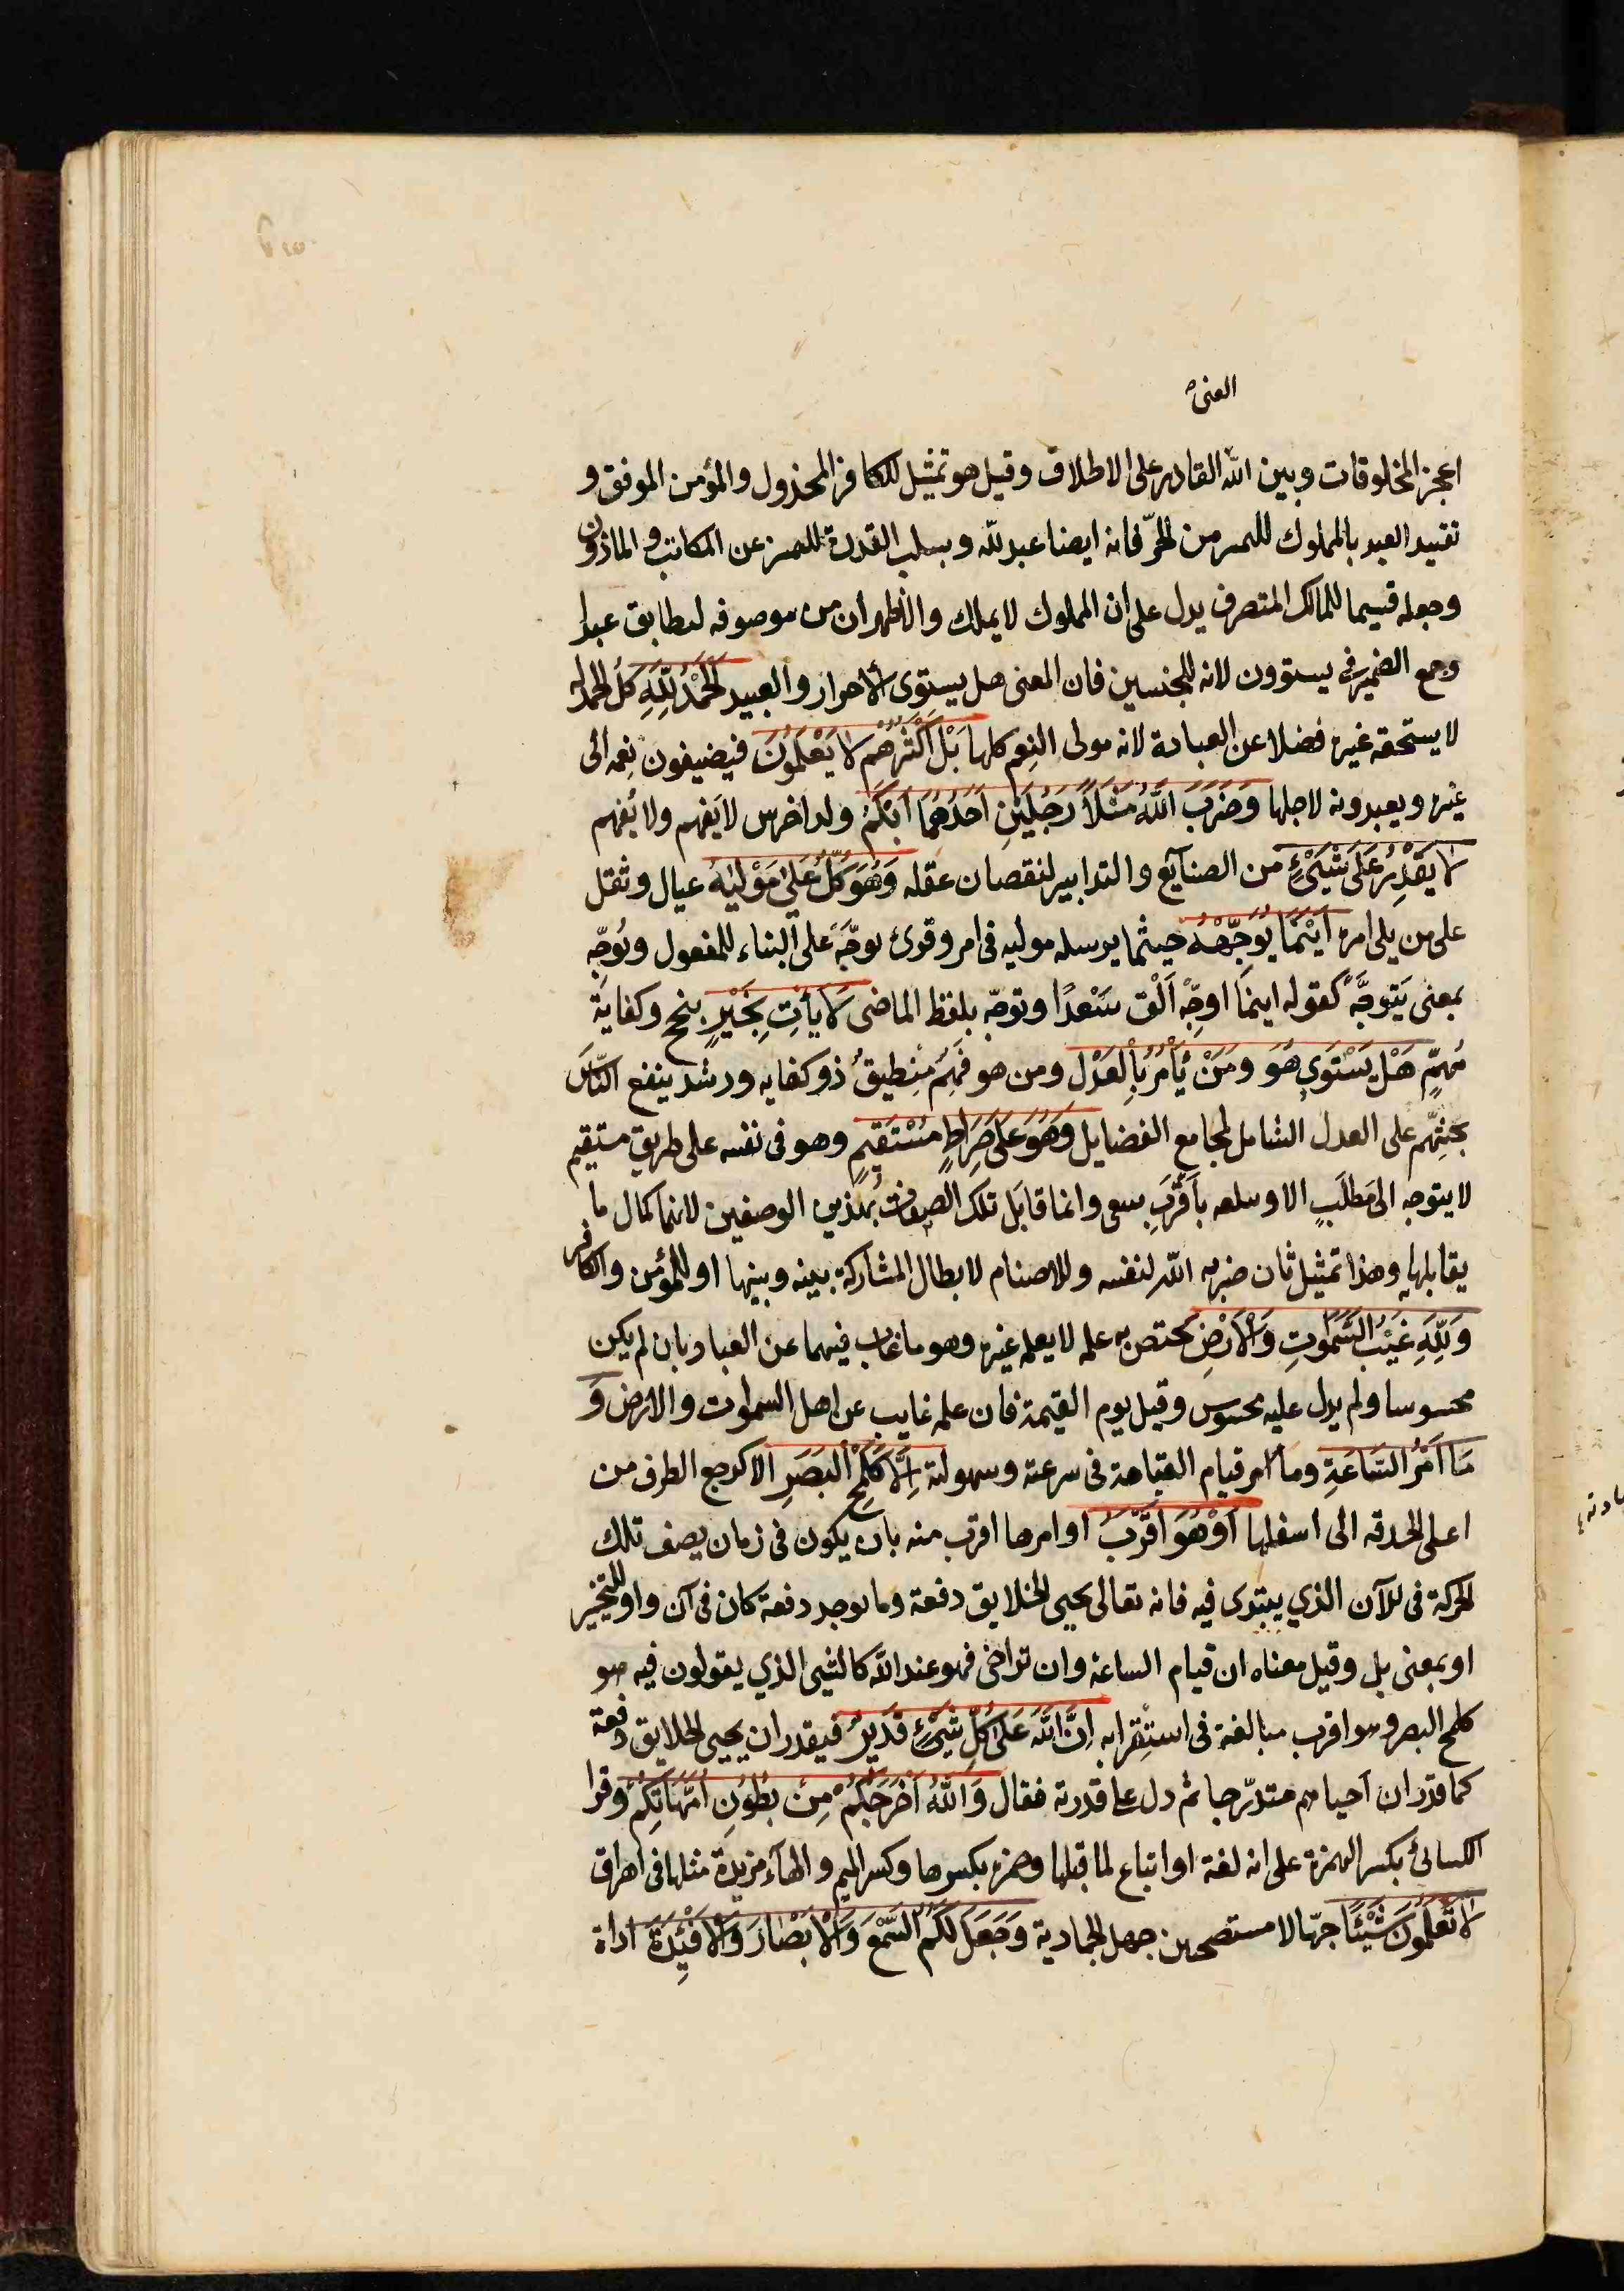 الغنی
اعجز المخلوقات وبين الله القادر على الاطلاق وقيل هو تمثيل للكافر المخذول والمؤمن الموفق و
تقييد العبد بالمملوك للتميز من الحرّ فانه ايضا عبد لله وبسلب القدرة للتميز عن المكاتب و الماذون
وجعله قسيما للمالك المتصرف يدل على ان المملوك لا يملك والاظهر ان من موصوفه ليطابق عبدا
وجمع الضمير فى يستوون لانه للجنسين فان المعنى هل يستوى الاحرار والعبيد اَلْحَمْدُ لِلّٰهِ كل الحمد له
لا يستحقه غيره فضلا عن العبادة لانه مولى النِعم كلها بَلْ اَكْثَرُهُم لا يَعْلَمُونَ فيضيفون نِعمه الى
غيره ويعبدونه لاجلها وَضَرَبَ اللّٰهُ مَثَلًا رَجُلَيْنِ اَحَدُهُمَا اَبْكَمُ ولد اخرس لا يَفهم ولا يُفهم
لا يَقْدِرُ عَلَى شَيْءٍ من الصنآيع والتدابير لنقصان عقله وَهُوَ كَلٌّ عَلٰى مَوْلٰيهُ عيال وثقل
على من يلى امره اَيْنَمَا يُوَجِّهْهُ حيثما يرسله موليه فى امر وقرئ يوجَّه على البناء للمفعول ويُوجِّه
بمعنى يَتوجَّه كقوله اينما اوجِّهْ اَلْق سَعْدًا وتوجّه بلفظ الماضى لَا يَأْتِ بِخَيْرٍ بنجح وكفاية
مُهِمٍّ هَلْ يَسْتَوِي هُوَ ومَنْ يَأْمُرُ بِالْعَدْلِ ومن هو فَهِمٌ مِنْطيقٌ ذو كفايه ورشد ينفع النّاسَ
بحثِّهم على العدل الشامل لمجامع الفضايل وَهُوَ عَلَى صِرَاطٍ مُسْتَقِيمٍ وهو فى نفسه على طريق مستقيم
لا يتوجه الى مَطلَبٍ الا وسلعه باَقْرَبِ سعى وانما قابَل تلك الصفات بهذين الوصفين لانهما كمال ما
يقابلها وهذا تمثيل ثان ضربه الله لنفسه وللاصنام لابطال المشاركة بينه وبينها او للمؤمن والكافر
وَلِلّٰهِ غَيْبُ السَّمٰوٰتِ وَالْاَرْضِ يختص به علمه لا يعلمه غيره وهو ما غاب فيهما عن العباد بان لم يكن
محسوسا ولم يدل عليه محسوس وقيل يوم القيمة فان علمه غايب عن اهل السموات والارض وَ
مَا اَمْرُ السَّاعَةِ وما امر قيام القيامة فى سرعته وسهولته اِلَّا كَلَمْحِ الْبَصَرِ الا كرجع الطرف من
اعلى الحدقه الى اسفلها اَوْ هُوَ اَقْرَبُ او امرها اقرب منه بان يكون فى زمان يصف تلك
الحركة فى للآن الذي يبتدى فيه فانه تعالى يحيى الخلايق دفعة وما يوجد دفعة كان فى آن واو للتخيير
او بمعنى بل وقيل معناه ان قيام الساعه وان تراخى فهو عند الله كالشئ الذي يقولون فيه هو
كلمح البصر وهو اقرب مبالغة فى استِقْرابه اِنَّ اللّٰهَ عَلَى كُلِّ شَيْءٍ قَدِيرٌ فيقدر ان يحيى الخلايق دفعة
كما قدر ان احياهم متدرّجا ثم دل على قدرته فقال وَاللّٰهُ اَخْرَجَكُمْ مِنْ بُطُونِ اُمَّهَاتِكُمْ وقرا
الكسائي بكسر الهمزة على انه لغة او اتباع لما قبلها وحمزه بكسرها وكسر الميم والهآء مزيدة مثلها فى اهراق
لَا تَعْلَمُونَ شَيْئًا جهّالا مستصحبين جهل الجمادية وَجَعَلَ لَكُمُ السَّمْعَ وَالْاَبْصَارَ وَالْاَفْئِدَةَ اداة